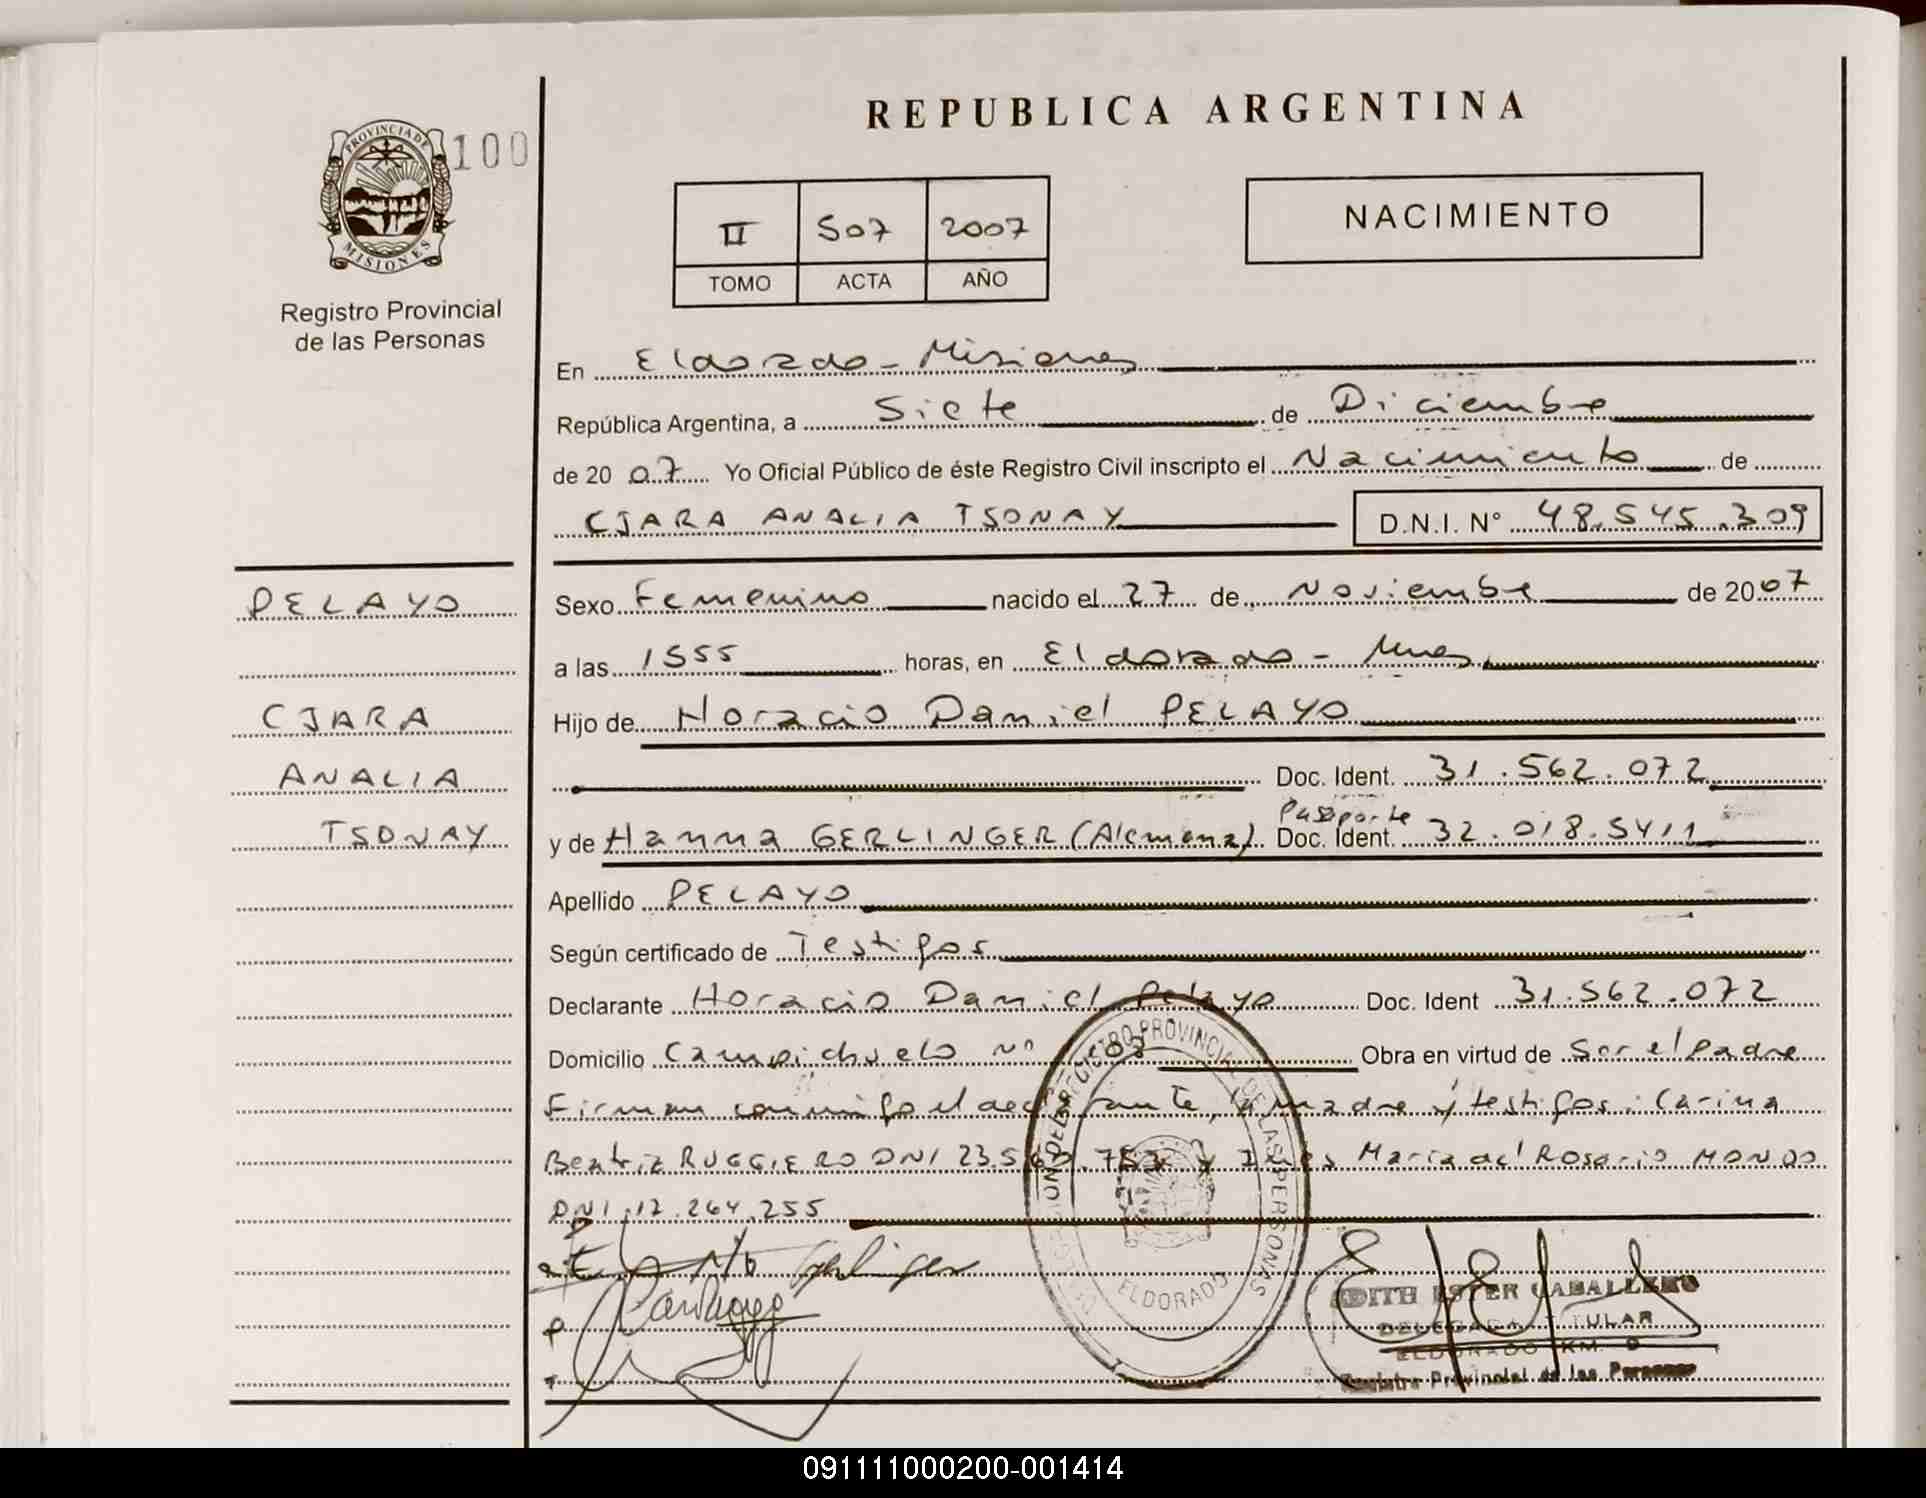 REPUBLICA ARGENTINA
PROVINCIA DE
MISIONES
100
Registro Provincial
de las Personas
II 507 2007
TOMO ACTA AÑO
NACIMIENTO
En Eldorado - Misiones
República Argentina, a Siete de Diciembre
de 2007 Yo Oficial Público de éste Registro Civil inscripto el Nacimiento de
CJARA ANALIA TSONAY D.N.I. N° 48.545.309
PELAYO
CJARA
ANALIA
TSONAY
Sexo Femenino nacido el 27 de Noviembre de 2007
a las 1555 horas, en Eldorado - Mnes
Hijo de Horacio Daniel PELAYO
Doc. Ident. 31.562.072
Pasaporte
y de Hanna GERLINGER (Alemana) Doc. Ident. 32.018.5411
Apellido PELAYO
Según certificado de Testigos
Declarante Horacio Daniel Pelayo Doc. Ident 31.562.072
Domicilio Campichuelo N° Obra en virtud de Ser el Padre
Firman conmigo el declarante, la madre y testigos: Carina
Beatriz RUGGIERO DNI y Ines Maria del Rosario MONDO
DNI 12.264.255
REGISTRO PROVINCIAL DE LAS PERSONAS
ELDORADO
Gerlinger
EDITH ESTER CABALLERO
DELEGADA TITULAR
ELDORADO KM. 9
Registro Provincial de las Personas
091111000200-001414